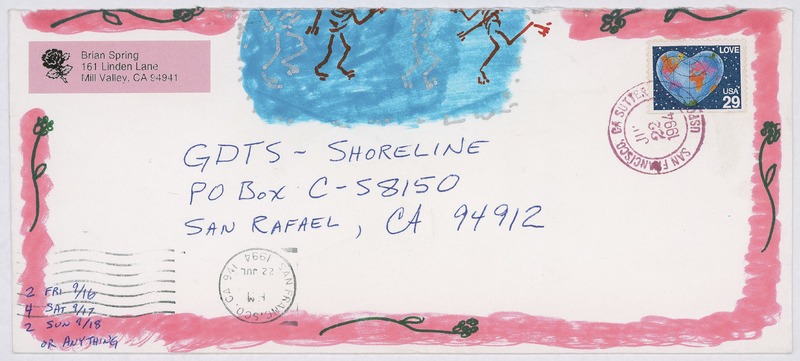 Brian Spring
161 Linden Lane
Mill Valley, CA 94941
LOVE
USA
29
SAN FRANCISCO, CA SUTTER
USTP
JUL
22
1994
GDTS - SHORELINE
PO BOX C-58150
SAN RAFAEL, CA 94912
SAN FRANCISCO, CA 941
PM
22 JUL
1994
2 FRI 9/16
4 SAT 9/17
2 SUN 9/18
OR ANYTHING